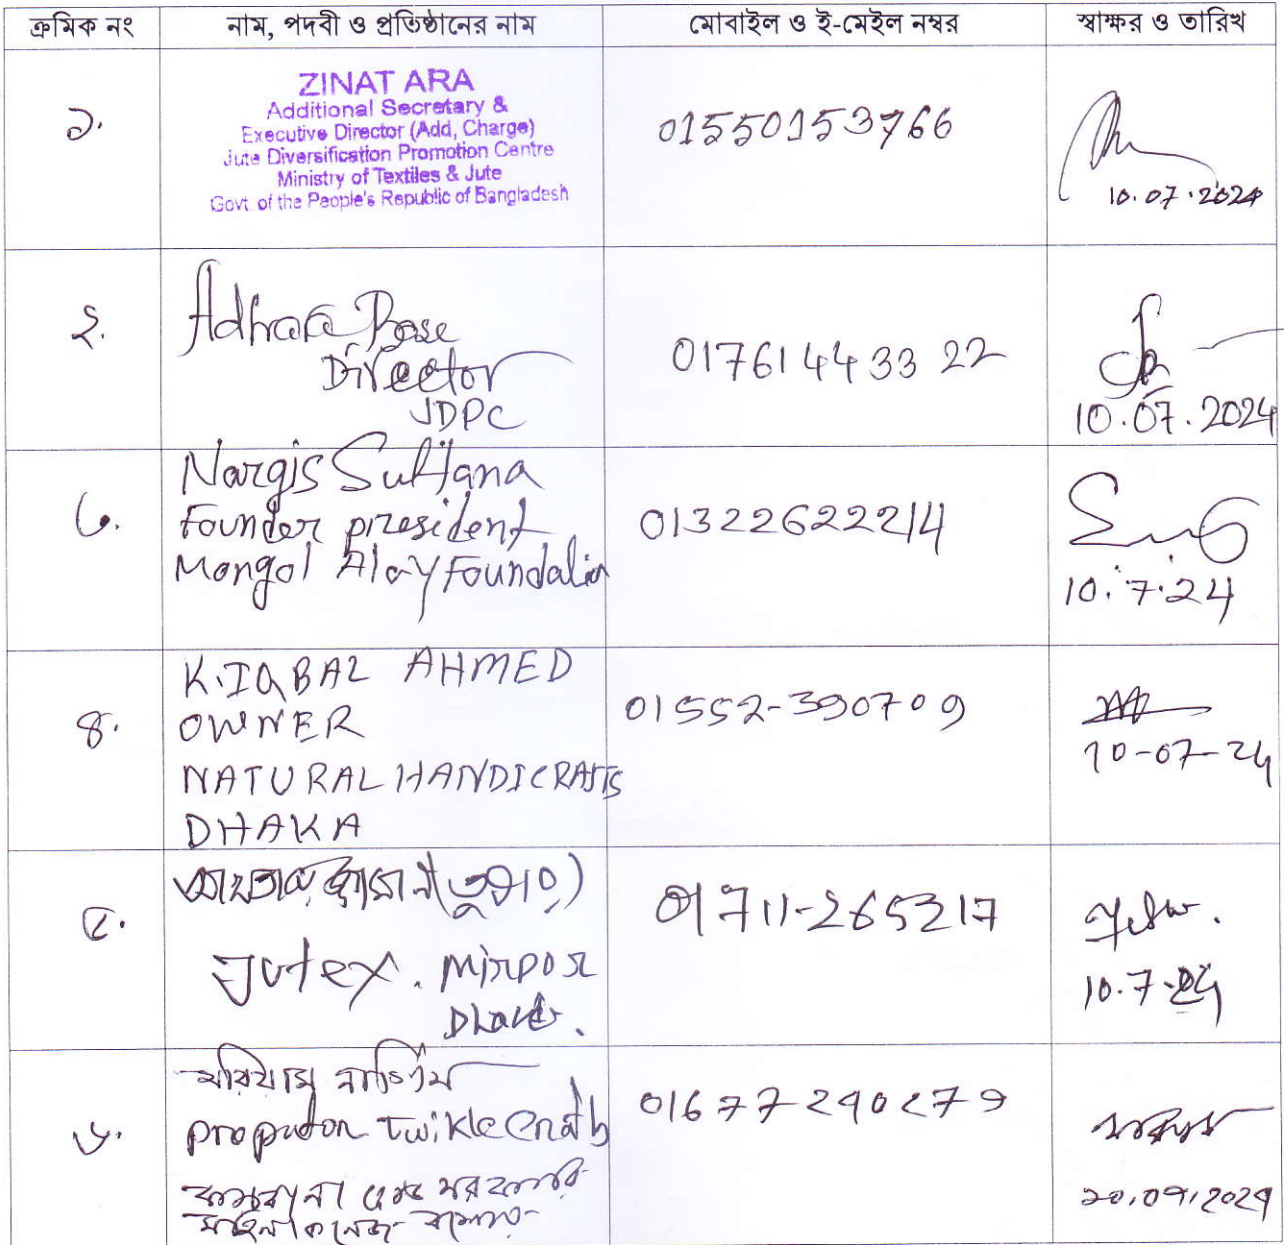 ক্রমিক নং নাম, পদবী ও প্রতিষ্ঠানের নাম মোবাইল ও ই-মেইল নম্বর স্বাক্ষর ও তারিখ
১. ZINAT ARA
Additional Secretary &
Executive Director (Add, Charge)
Jute Diversification Promotion Centre
Ministry of Textiles & Jute
Govt. of the People's Republic of Bangladesh
01550153766
10.07.2024
২. Adhara Bose
Director
JDPC
01761443322
10.07.2024
৩. Nargis Sultana
Founder president
Mongol Alay Foundation
01322622214
10.7.24
৪. K.IQBAL AHMED
OWNER
NATURAL HANDICRAFTS
DHAKA
01552-390709
10-07-24
৫.
Jutex. Mirpor
Dhaka.
01711-265217
10.7.24
৬. মরিয়াম নার্গিস
twikle